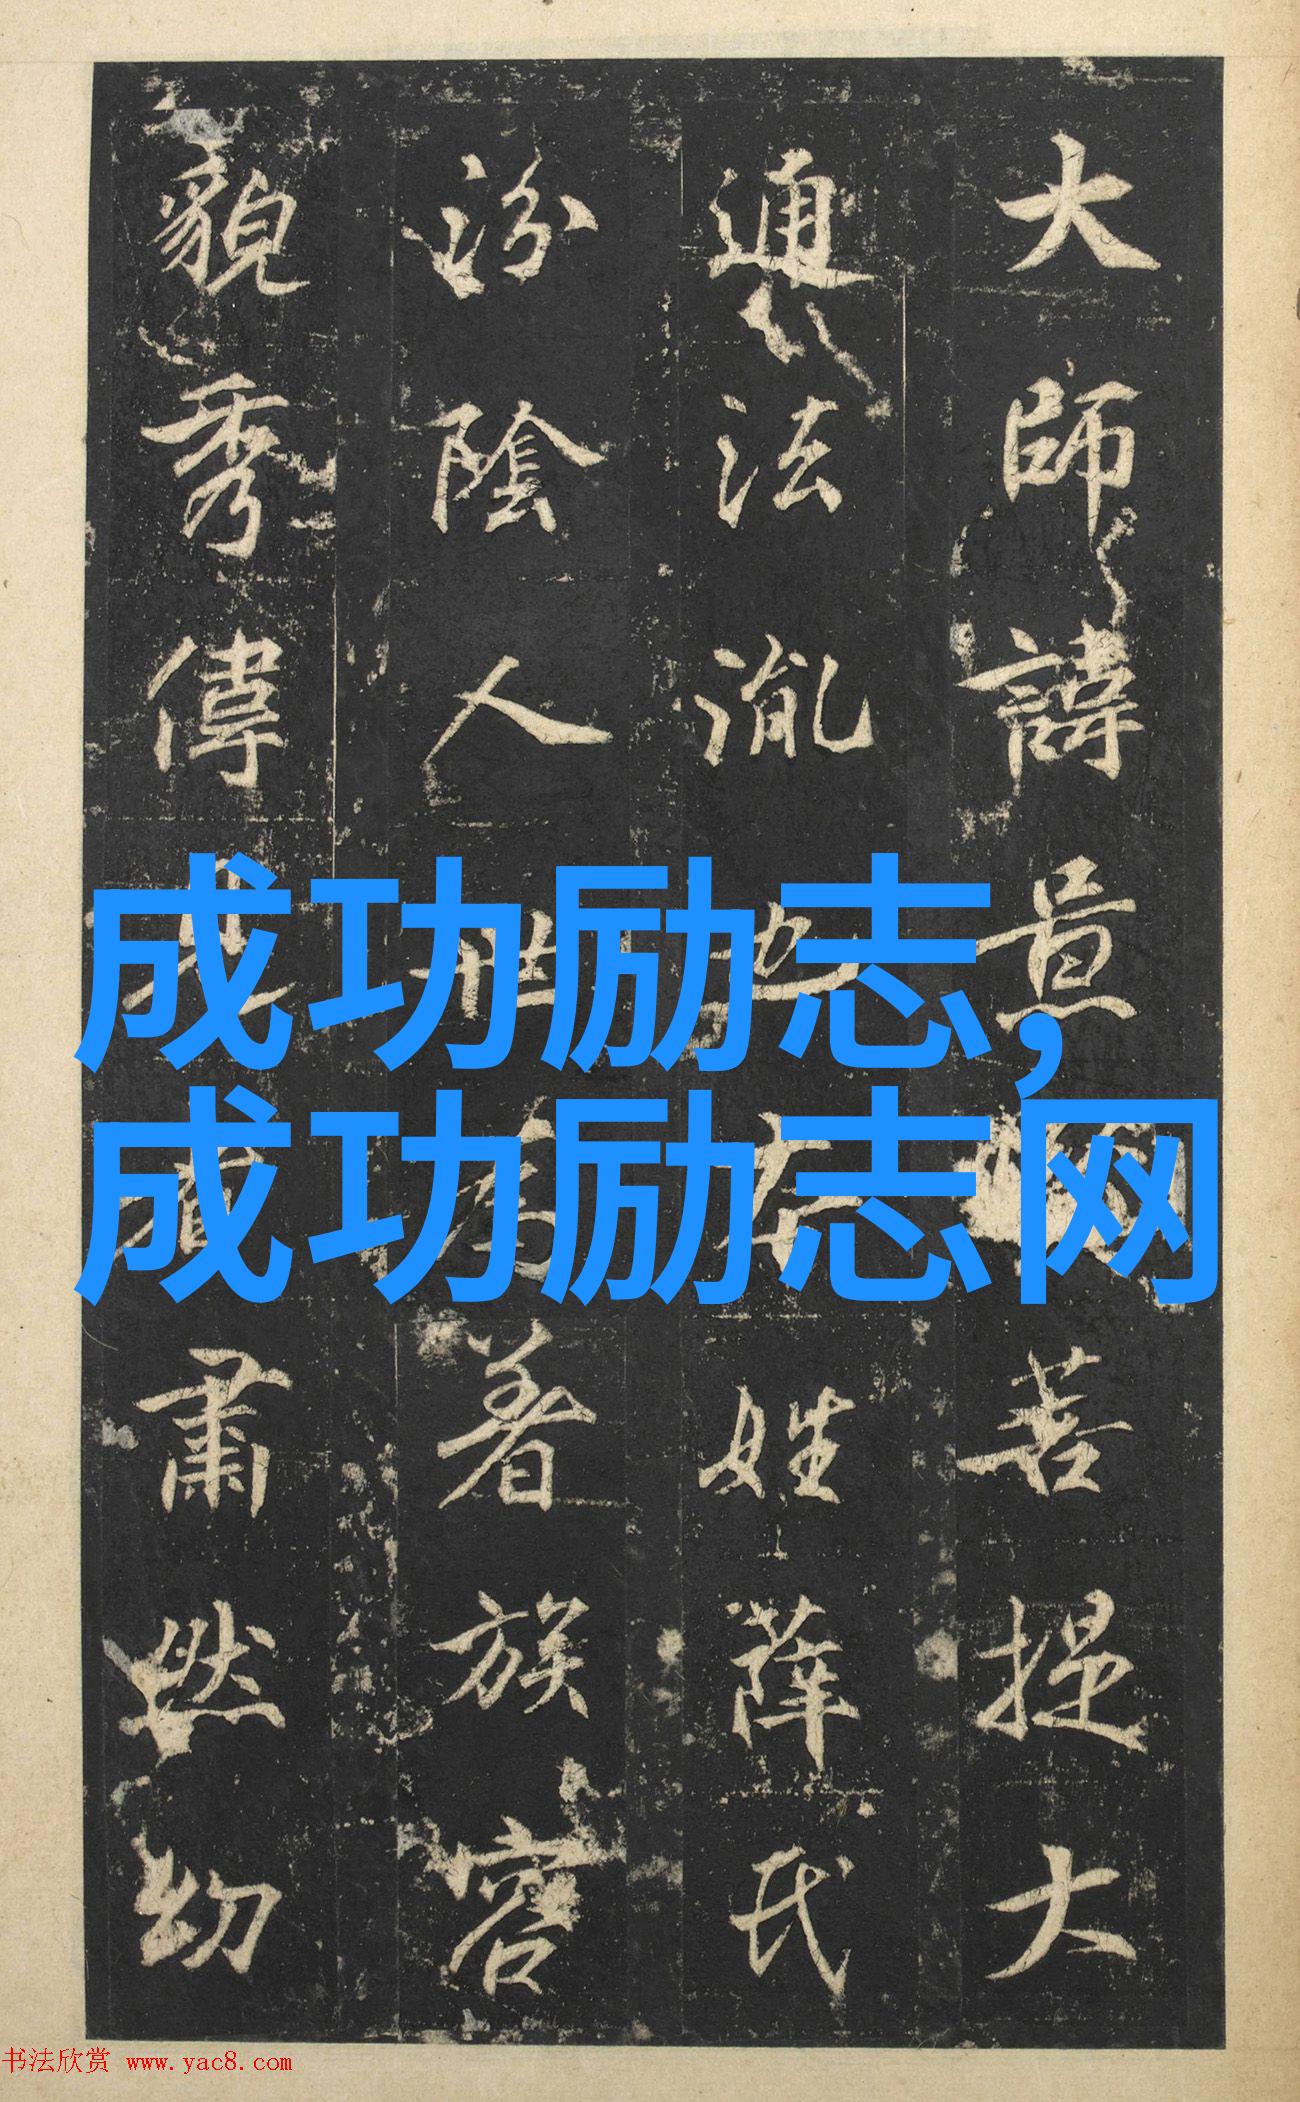 大師諱菩提大
通法胤也姓薛氏
汾陰人世為著族容
貌秀偉肅然幼
成功励志,
成功励志网
书法欣赏 www.yac8.com